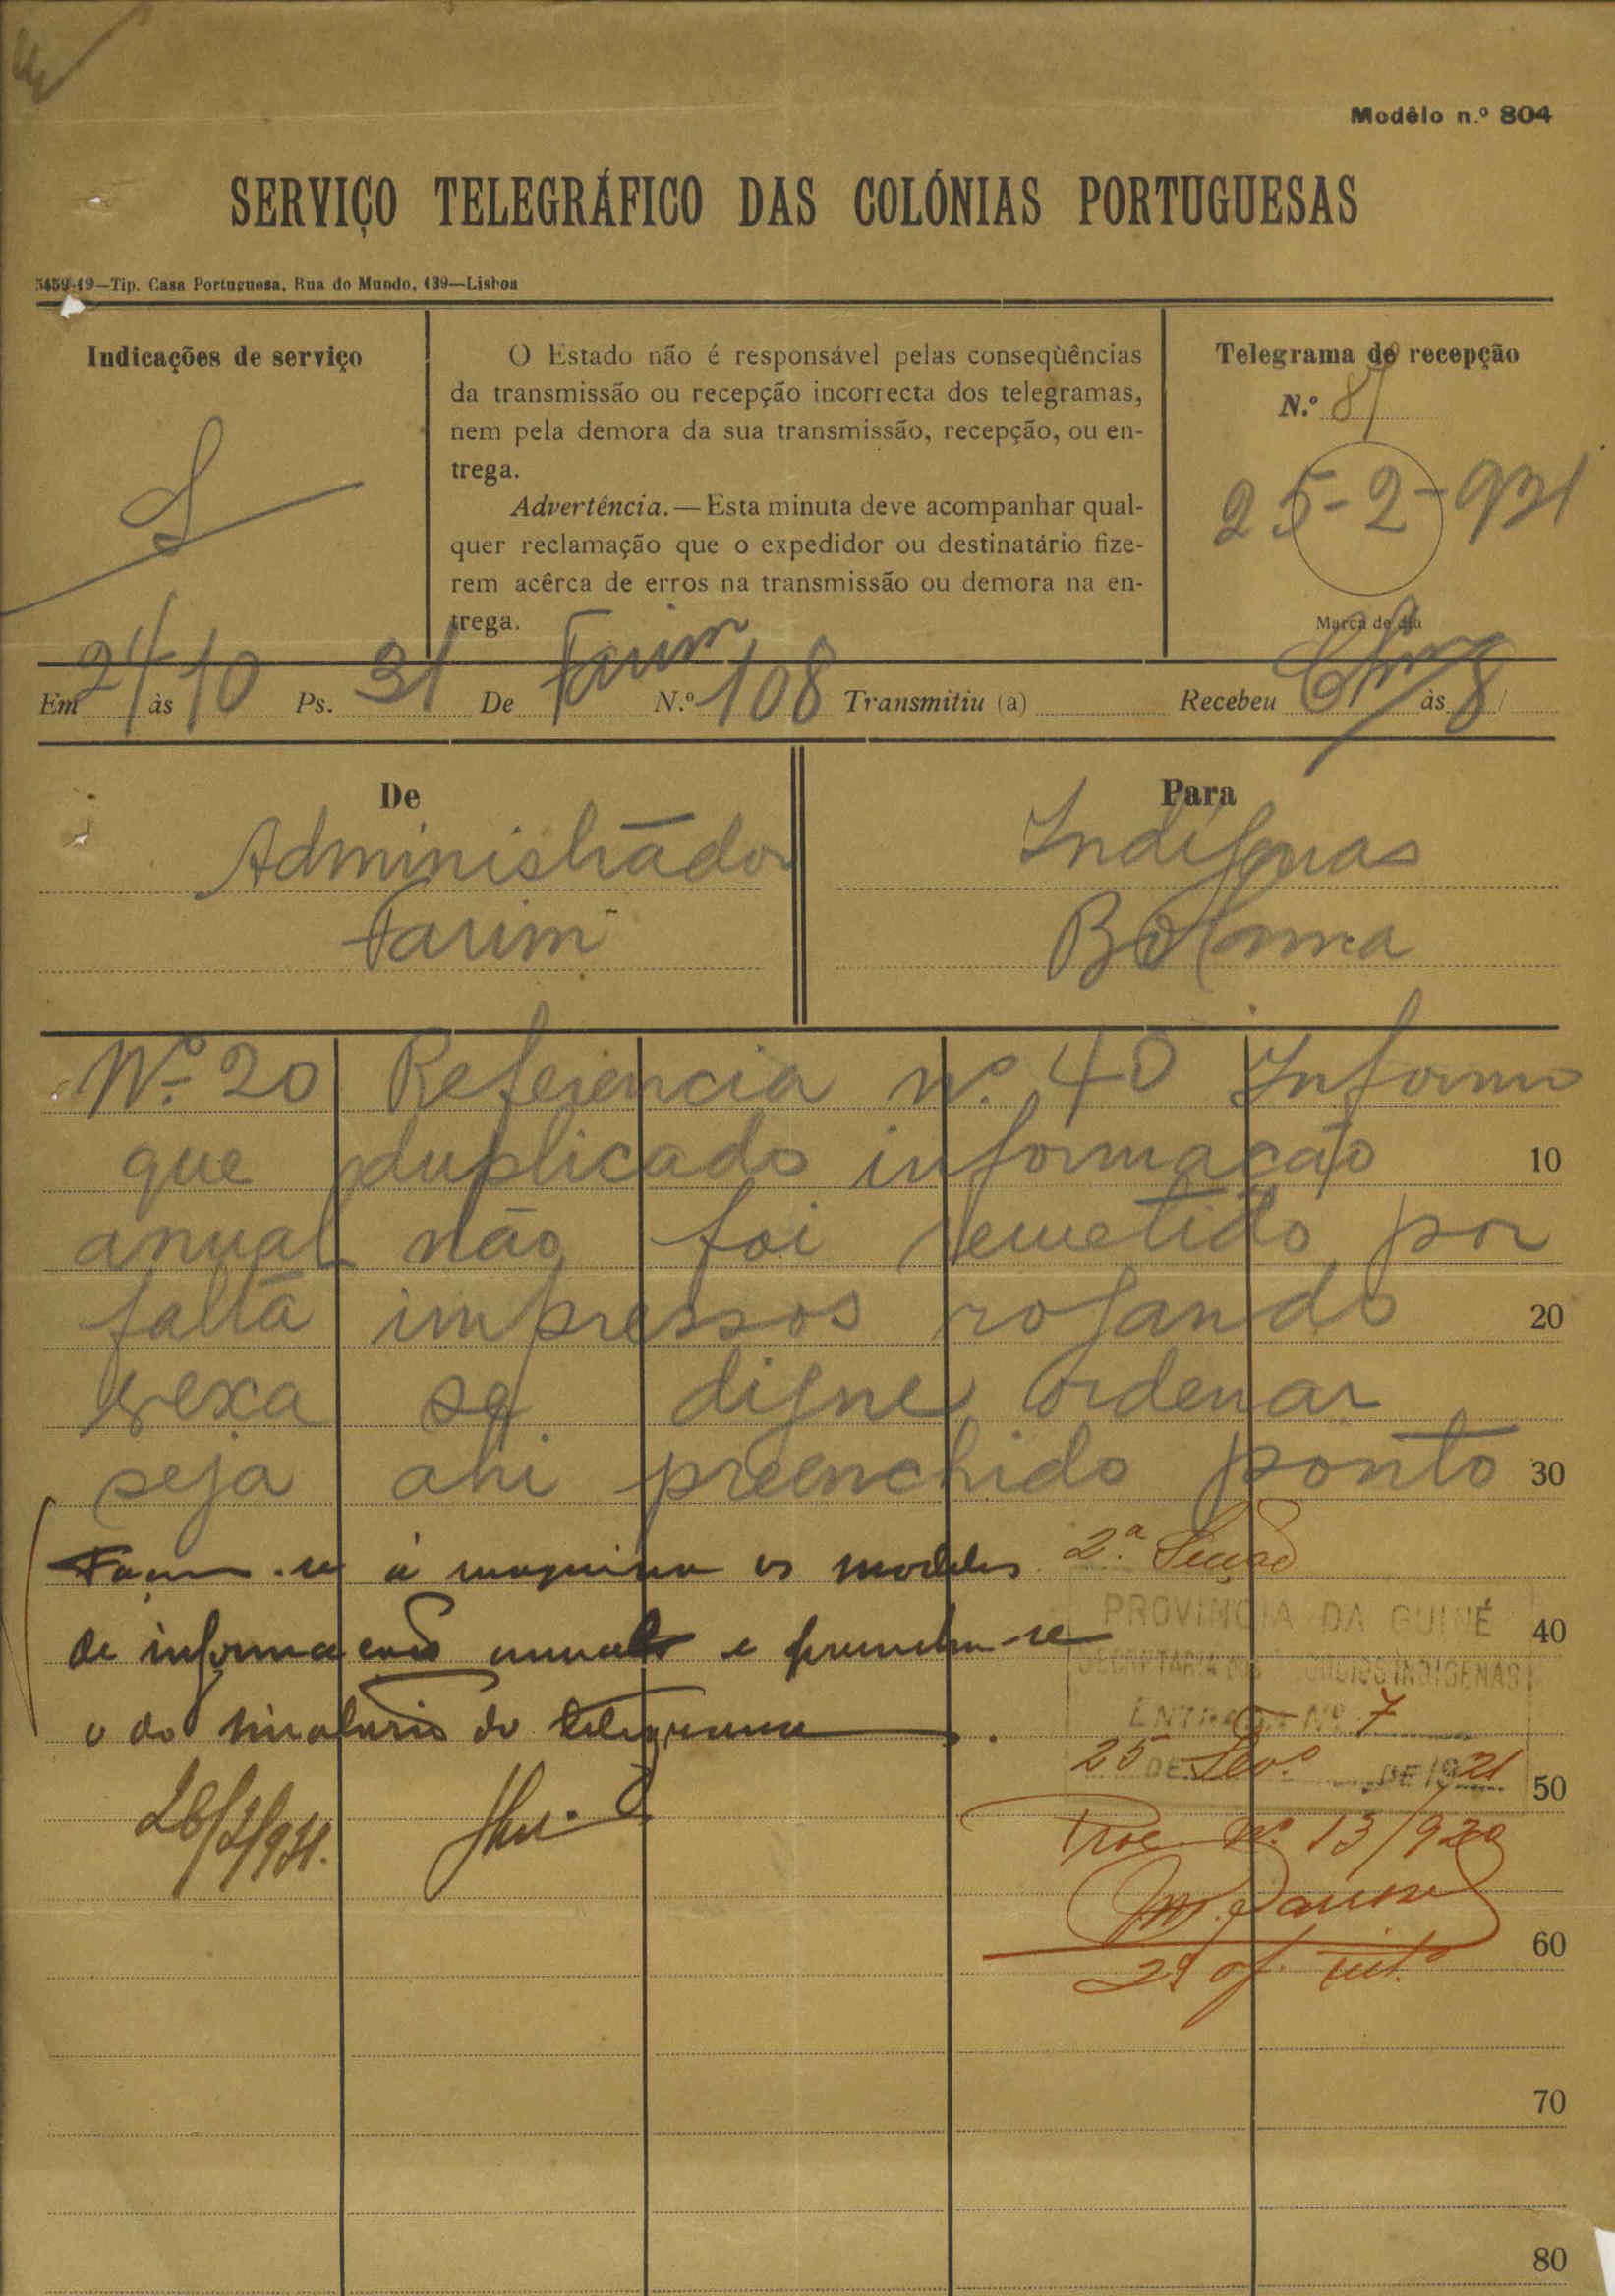 Modêlo n.º 804
SERVIÇO TELEGRÁFICO DAS COLÓNIAS PORTUGUESAS
5459-19—Tip. Casa Portuguesa, Rua do Mundo, 139—Lisboa
Indicações de serviço
S
O Estado não é responsável pelas conseqùências
da transmissão ou recepção incorrecta dos telegramas,
nem pela demora da sua transmissão, recepção, ou en-
trega.
Advertência.—Esta minuta deve acompanhar qual-
quer reclamação que o expedidor ou destinatário fize-
rem acêrca de erros na transmissão ou demora na en-
trega.
Telegrama de recepção
N.º 87
25-2-931
Marca de dia
Em 24 às 10 Ps. 31 De Farim N.º 108 Transmitiu (a) Recebeu às 8
De
Administrador
Farim
Para
Indígenas
Bolama
Nº 20 Referencia nº 40 Informo
que duplicado informação 10
anual não foi remetido por
falta impressos rogando 20
vexa se digne ordenar
seja ahi preenchido ponto 30
Façam-se á maquina os modelos
de informações anuais e preencha-se
o do signatario do telegrama.
26/2/931.
2.ª Secção
PROVINCIA DA GUINÉ
SECRETARIA DOS NEGOCIOS INDIGENAS
ENTRADA Nº 7
25 DE Fevº DE 1931
40
50
Proc. nº 13/930
2º of. intº
60
70
80